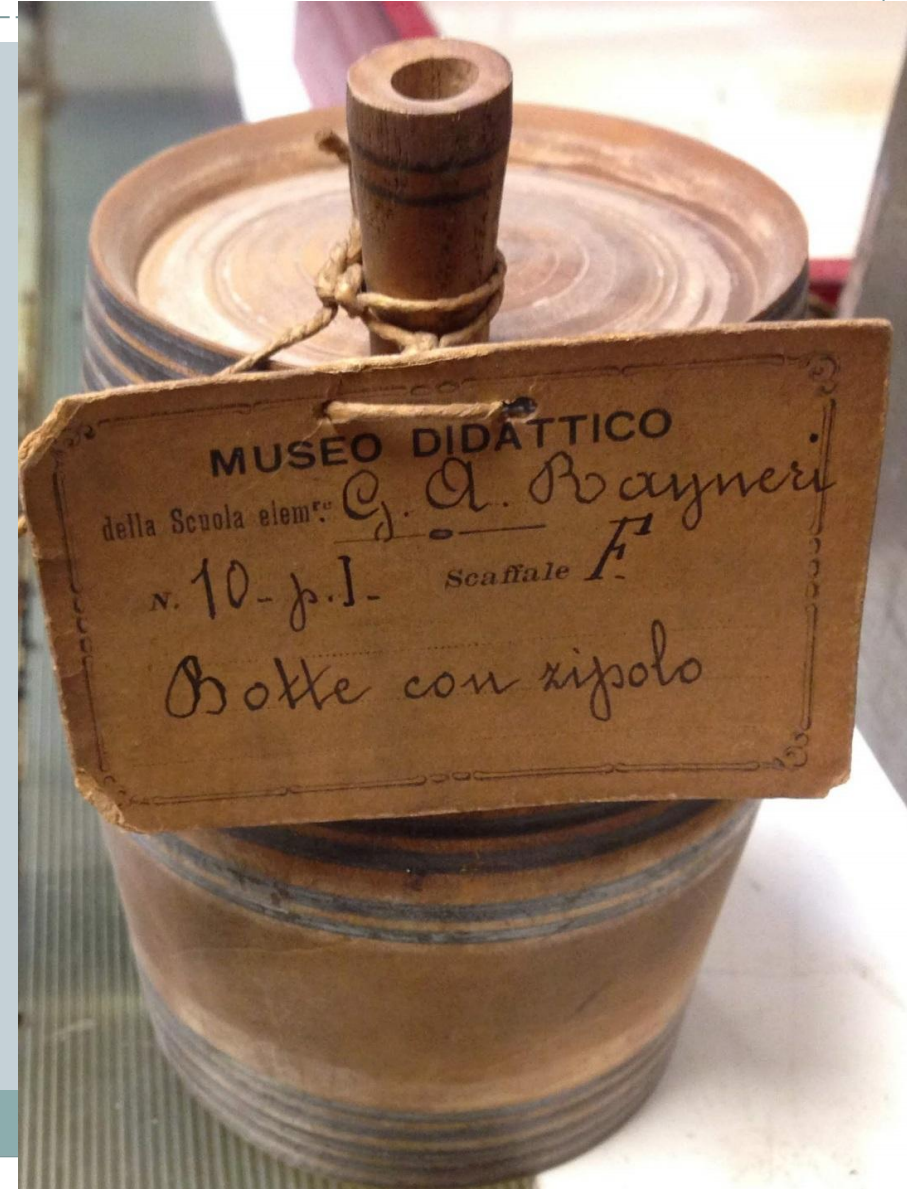 MUSEO DIDATTICO
della Scuola elem.re G. A. Rayneri
N. 10 - p. I - Scaffale F.
Botte con zipolo